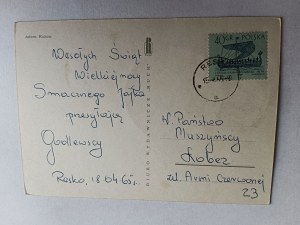 Wesołych Świąt
Wielkiejnocy
Smacznego Jajka
przesyłają
Godlewscy
Resko, 18.04.65.
BIURO WYDAWNICZE "RUCH"
POLSKA
W Państwo
Muszyńscy
Łobez
ul. Armii Czerwonej
23